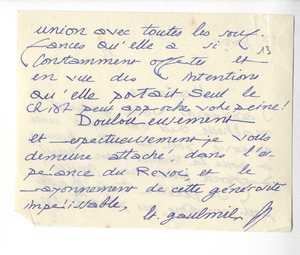 union avec toutes les souf-
frances qu'elle a si 13
constamment offertes et
en vue des intentions
qu'elle portait. Seul le
Christ peut approcher votre peine!
Douloureusement
et respectueusement je vous
demeure attaché, dans l'es-
pérance du Revoir, et le
rayonnement de cette générosité
impérissable,